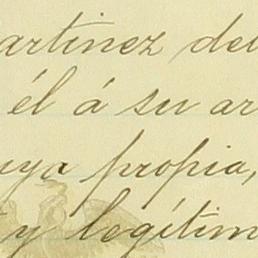 artinez del
él á su ar
uya propia,
y legítim